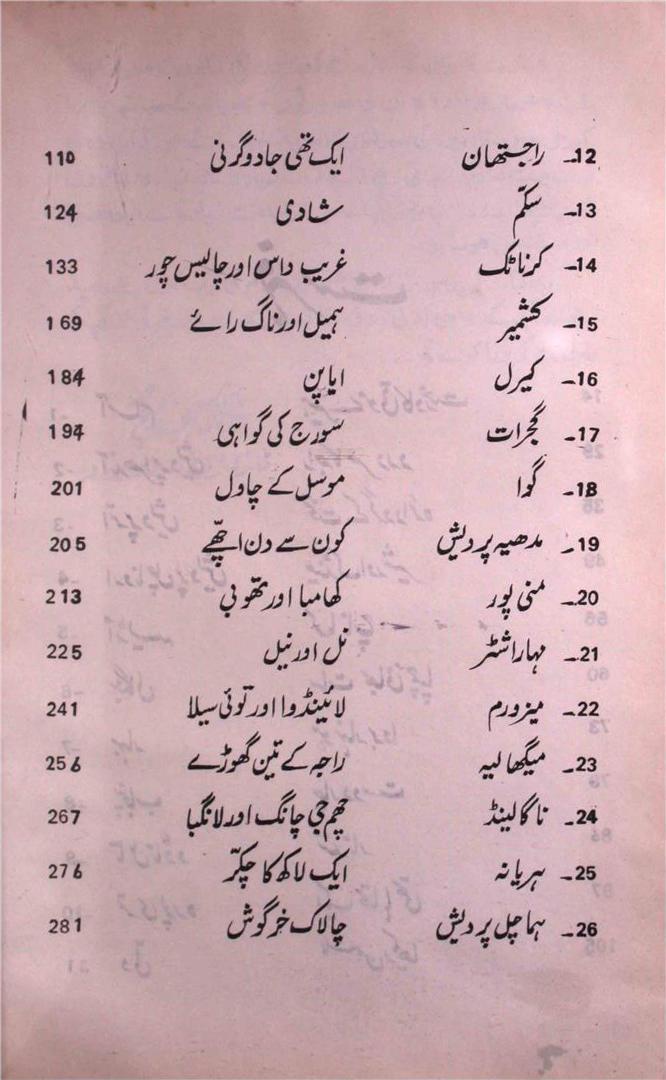 12۔ راجستھان ایک تھی جادوگرنی 110
13۔ سکّم شادی 124
14۔ کرناٹک غریب داس اور چالیس چور 133
15۔ کشمیر ہمیل اور ناگ رائے 169
16۔ کیرل ایاپن 184
17۔ گجرات سورج کی گواہی 194
18۔ گوا موسل کے چاول 201
19۔ مدھیہ پردیش کون سے دن اچھّے 205
20۔ منی پور کھامبا اور تھوبی 213
21۔ مہاراشٹر نل اور نیل 225
22۔ میزورم لائینڈوا اور توئی سیلا 241
23۔ میگھالیہ راجہ کے تین گھوڑے 256
24۔ ناگالینڈ چھم جی چانگ اور لانگبا 267
25۔ ہریانہ ایک لاکھ کا چکّر 276
26۔ ہماچل پردیش چالاک خرگوش 281